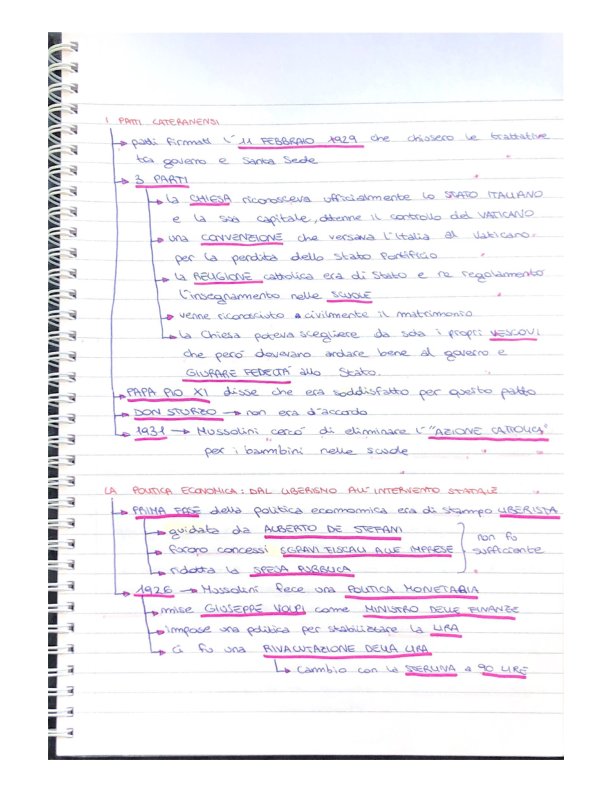 I PATTI LATERANENSI
→ patti firmati l'11 FEBBRAIO 1929 che chiusero le trattative
tra governo e Santa Sede
→ 3 PARTI
→ la CHIESA riconosceva ufficialmente lo STATO ITALIANO
e la sua capitale, ottenne il controllo del VATICANO
→ una CONVENZIONE che versava l'Italia al Vaticano
per la perdita dello Stato Pontificio
→ la RELIGIONE cattolica era di Stato e ne regolamentò
l'insegnamento nelle SCUOLE
→ venne riconosciuto civilmente il matrimonio
→ la Chiesa poteva scegliere da sola i propri VESCOVI
che però dovevano andare bene al governo e
GIURARE FEDELTÀ allo Stato.
→ PAPA PIO XI disse che era soddisfatto per questo patto
→ DON STURZO → non era d'accordo
→ 1931 → Mussolini cercò di eliminare l'"AZIONE CATTOLICA"
per i bambini nelle scuole
LA POLITICA ECONOMICA: DAL LIBERISMO ALL'INTERVENTO STATALE
→ PRIMA FASE della politica economica era di stampo LIBERISTA
→ guidata da ALBERTO DE STEFANI
→ furono concessi SGRAVI FISCALI ALLE IMPRESE
→ ridotta la SPESA PUBBLICA
non fu
sufficiente
→ 1926 → Mussolini fece una POLITICA MONETARIA
→ mise GIUSEPPE VOLPI come MINISTRO DELLE FINANZE
→ impose una politica per stabilizzare la LIRA
→ ci fu una RIVALUTAZIONE DELLA LIRA
↳ cambio con la STERLINA a 90 LIRE